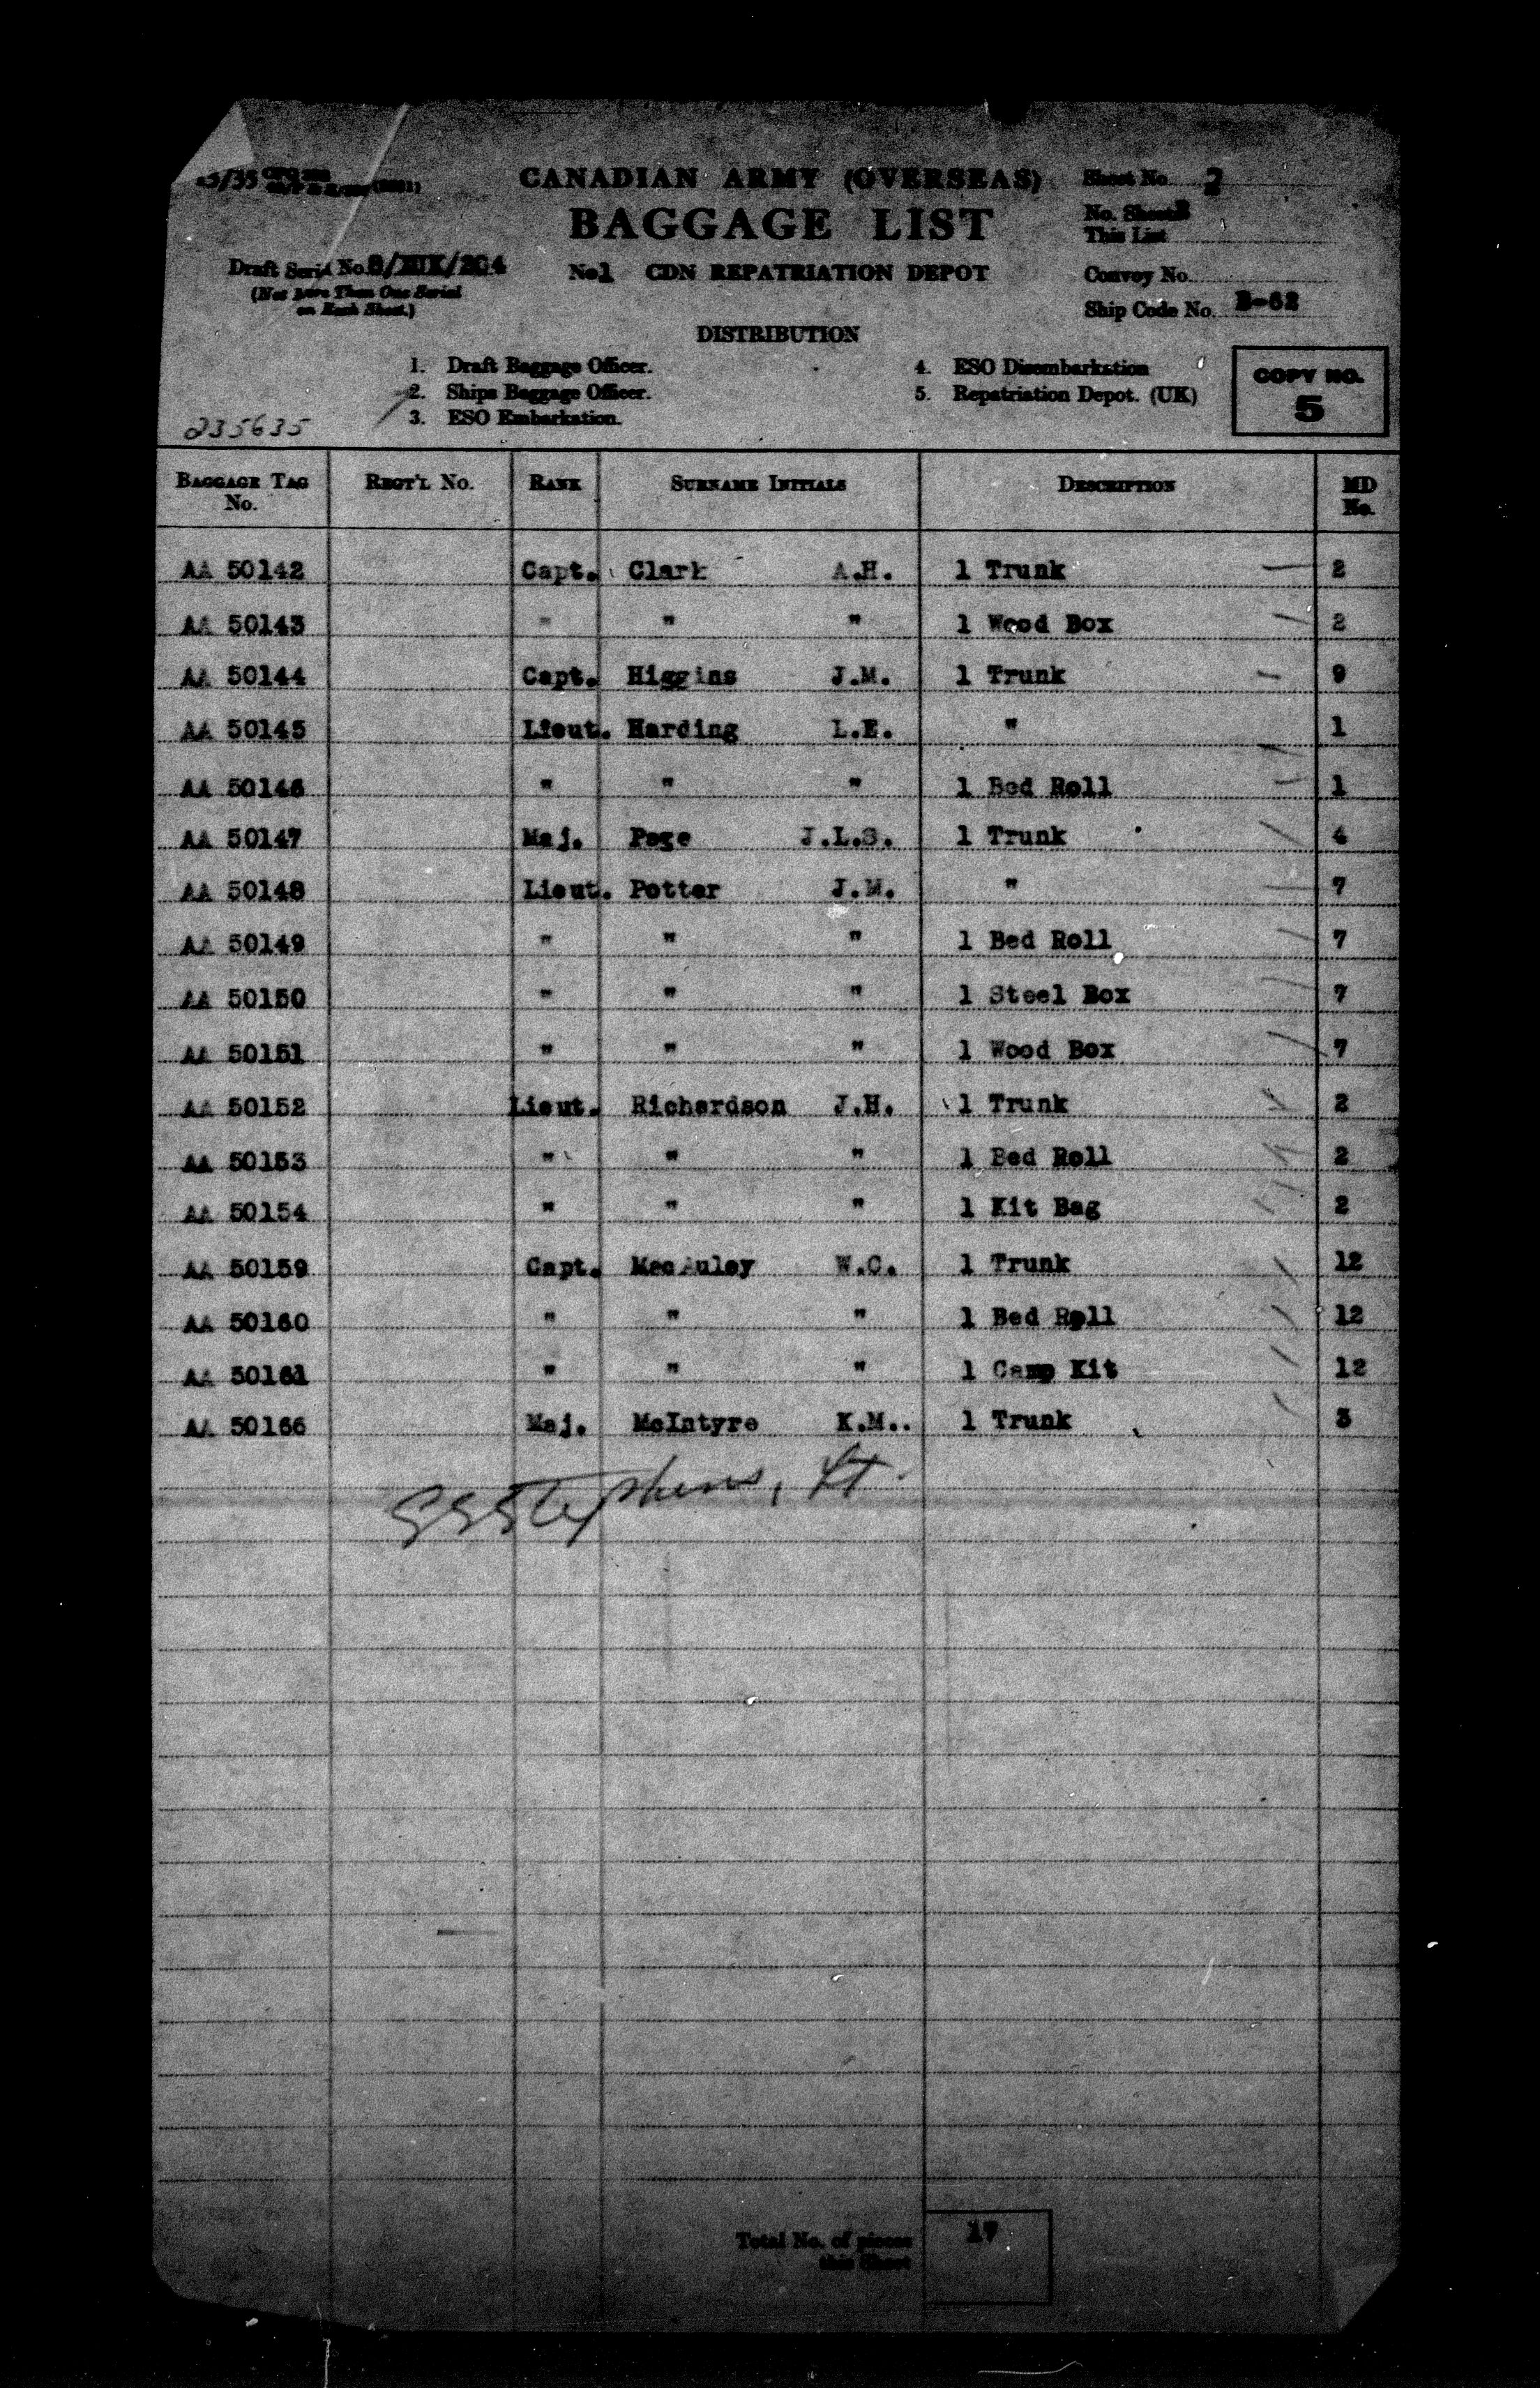 CANADIAN ARMY (OVERSEAS)
BAGGAGE LIST
No1 CDN REPATRIATION DEPOT
Sheet No. 2
No. Sheets
This List
Convoy No.
Ship Code No. B-62
Draft Serial No.
(Not More Than One Serial
on Each Sheet.)
DISTRIBUTION
1. Draft Baggage Officer.
2. Ships Baggage Officer.
3. ESO Embarkation.
4. ESO Disembarkation
5. Repatriation Depot. (UK)
COPY NO.
5
235635
BAGGAGE TAG No. REGT'L No. RANK SURNAME INITIALS DESCRIPTION MD No.
AA 50142 Capt. Clark A.H. 1 Trunk 2
AA 50143 " " " 1 Wood Box 2
AA 50144 Capt. Higgins J.M. 1 Trunk 9
AA 50145 Lieut. Harding L.E. " 1
AA 50146 " " " 1 Bed Roll 1
AA 50147 Maj. Page J.L.S. 1 Trunk 4
AA 50148 Lieut. Potter J.M. " 7
AA 50149 " " " 1 Bed Roll 7
AA 50150 " " " 1 Steel Box 7
AA 50151 " " " 1 Wood Box 7
AA 50152 Lieut. Richardson J.H. 1 Trunk 2
AA 50153 " " " 1 Bed Roll 2
AA 50154 " " " 1 Kit Bag 2
AA 50159 Capt. MacAuley W.C. 1 Trunk 12
AA 50160 " " " 1 Bed Roll 12
AA 50161 " " " 1 Camp Kit 12
AA 50166 Maj. McIntyre K.M.. 1 Trunk 3
Stephens, Lt.
Total No. of pieces 17
this Sheet